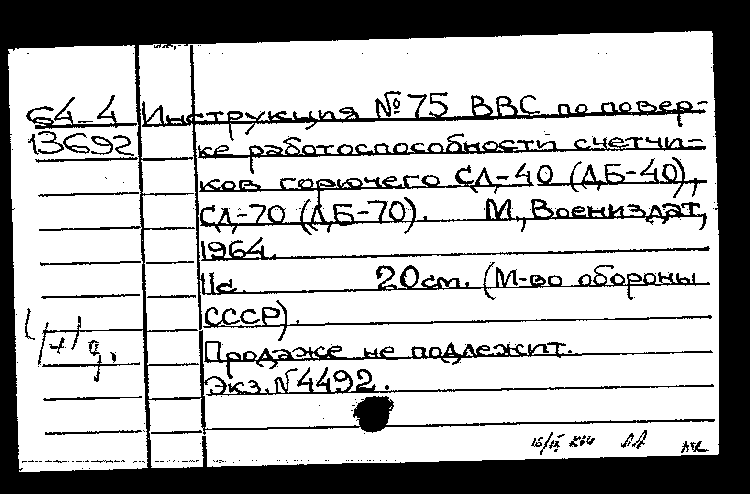 64-4 Инструкция № 75 ВВС по повер-
13692 ке работоспособности счетчи-
ков горючего СД-40 (ДБ-40),
СД-70 (ДБ-70). М., Воениздат,
1964.
11с. 20см. (М-во обороны
СССР).
Продаже не подлежит.
Экз. № 4492.